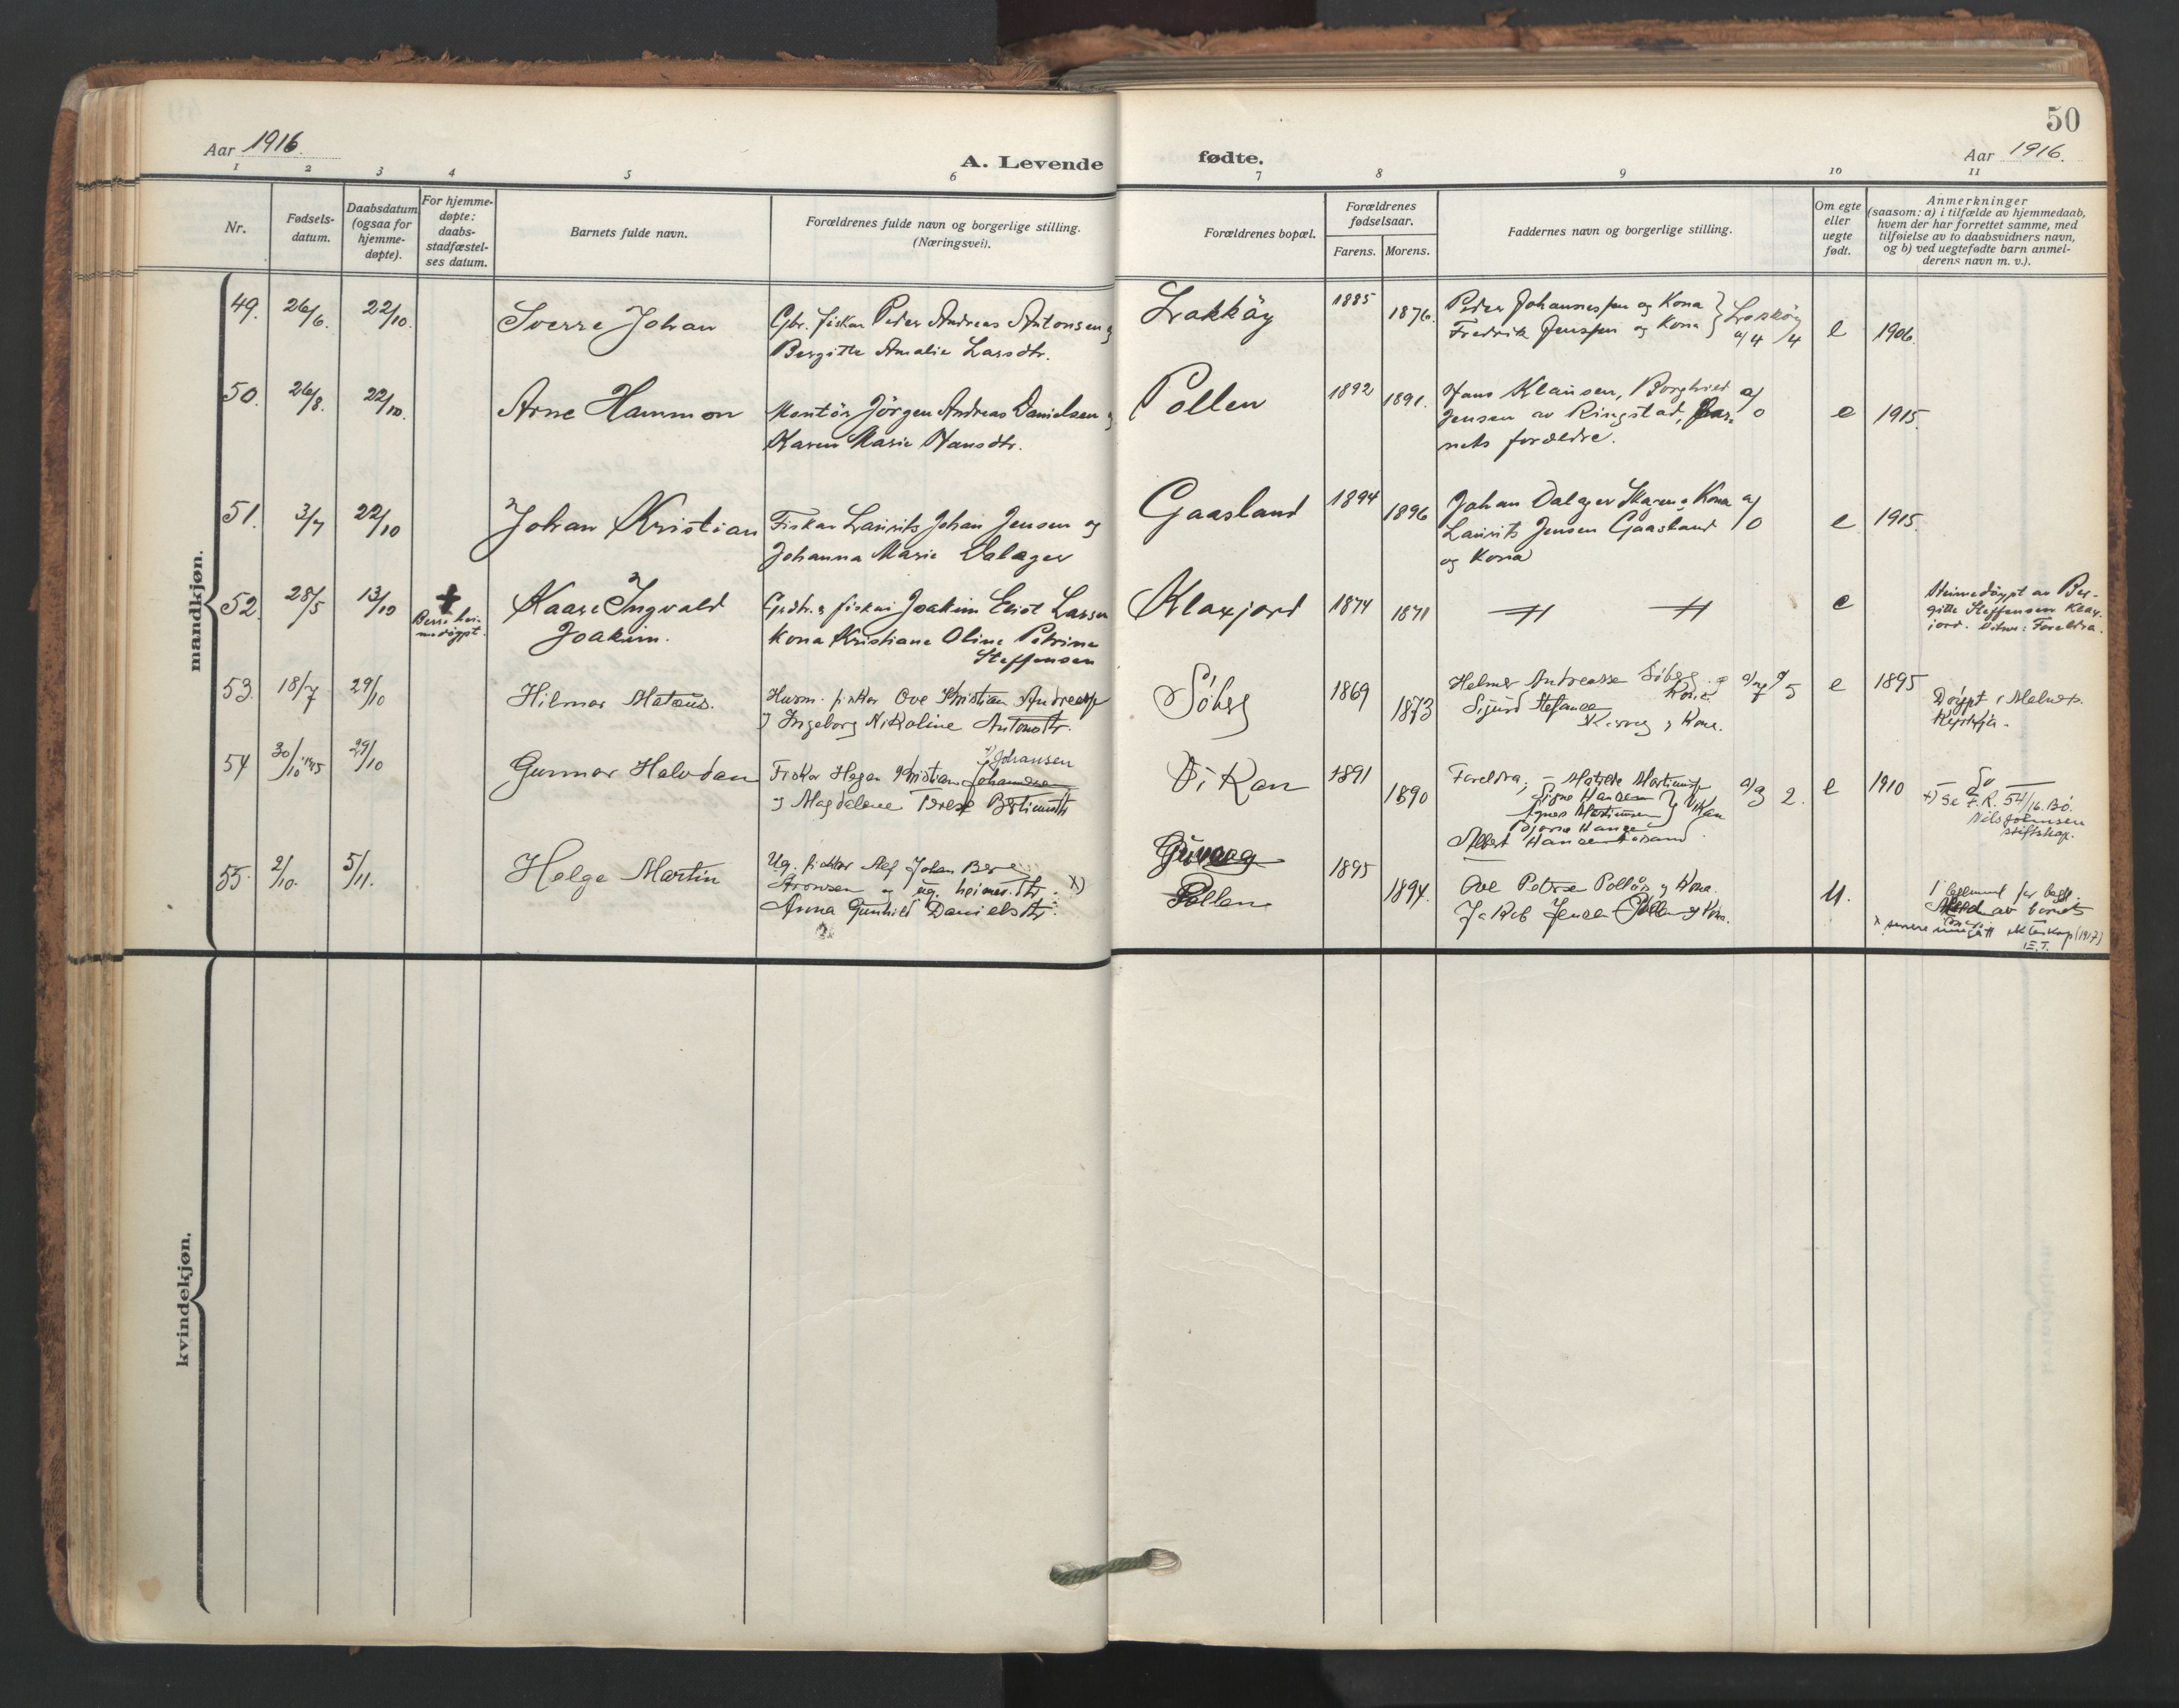 50
Aar 1916.
A. Levende fødte.
Aar 1916.
1 2 3 4 5 6 7 8 9 10 11
Nr.
Fødsels-
datum.
Daabsdatum
(ogsaa for
hjemme-
døpte).
For hjemme-
døpte:
daabs-
stadfæstel-
ses datum.
Barnets fulde navn.
Forældrenes fulde navn og borgerlige stilling.
(Næringsvei).
Forældrenes bopæl.
Forældrenes
fødselsaar.
Farens. Morens.
Faddernes navn og borgerlige stilling.
Om egte
eller
uegte
født.
Anmerkninger
(saasom: a) i tilfælde av hjemmedaab,
hvem der har forrettet samme, med
tilføielse av to daabsvidners navn,
og b) ved uegtefødte barn anmel-
derens navn m. v.).
mandkjøn.
49. 26/6. 22/10. Sverre Johan
Gbr. fiskar Peder Andreas Antonsen og
Bergitte Amalie Larsdtr.
1885 1876.
Peder Johannessen og Kona
Fredrik Jenssen og Kona
a/4 /4
e 1906.
50. 26/8. 22/10. Arne Hammon
Montör Jörgen Andreas Danielsen og
Karen Marie Hansdtr.
Pollen 1892 1891.
Hans Klausen, Borghild
Jensen av Ringstad, Bar-
nets forældre.
a/ 0
e 1915.
51. 3/7 22/10 Johan Kristian
Fiskar Laurits Johan Jensen og
Johanna Marie Dalager
Gaasland 1894 1896
Johan Dalager Skagen og Kona
Laurits Jensen Gaasland
og Kona
a/ 0
e 1915.
52. 28/5 13/10 +
Berre hei-
medöypt.
Kaare Ingvald
Joakim.
Gardbr. og fiskar Joakim Eliot Larsen
kona Kristiane Oline Petrine
Steffensen
Klaxjord 1874 1871
e
Heimedöypt av Ber-
gitte Steffensen Klax-
jord. Vitne: Foreldra.
53. 18/7 29/10 Hilmar Mateus.
Husm. fiskar Ove Kristian Andreass.
og Ingeborg Nikoline Antonsdtr.
Söberg 1869 1873
Helmer Andreasse Söberg og
Kona
Sigurd Stefansen
og Kona.
a/7 5
e 1895
Döypt i Melnes
54 30/10 1915 29/10 Gunnar Halvdan
Johansen
Fiskar Hagen Kristian Johannesen
og Magdalene
Vikan 1891 1890
Foreldra; Matilde Martinus.
Signe Hansen
Agnes Martinusen
Vikan
Bjarne Hansen
Albert Hansen
a/3 2.
e 1910
Do
+) Se F.R. 54/16. Bö.
Nils Johnsen
stiftskap.
55. 2/10. 5/11. Helge Martin
Ug. fiskar Alf Johan Berg
Aronsen og ug. heimev. dtr. x)
Anna Gunhild Danielsdtr.
Guvaag
Pollen
1895 1894.
Ove Peterse Pollen og Kona.
Jakob Jensen Pollen og Kona.
u.
av barnets
x senere inngått ekteskap (1917)
I.E.T.
kvindekjøn.